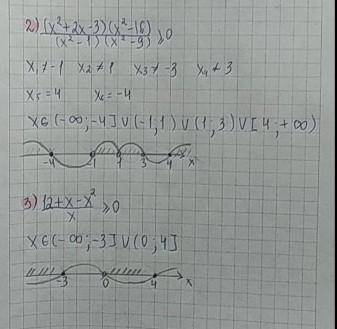 2) (x²+2x-3)(x²-16) / (x²-1)(x²-9) ≥ 0
x₁ ≠ -1 x₂ ≠ 1 x₃ ≠ -3 x₄ ≠ 3
x₅ = 4 x₆ = -4
x ∈ (-∞; -4] ∪ (-1; 1) ∪ (1; 3) ∪ [4; +∞)
-4 -1 1 3 4 x
3) 12+x-x² / x ≥ 0
x ∈ (-∞; -3] ∪ (0; 4]
-3 0 4 x